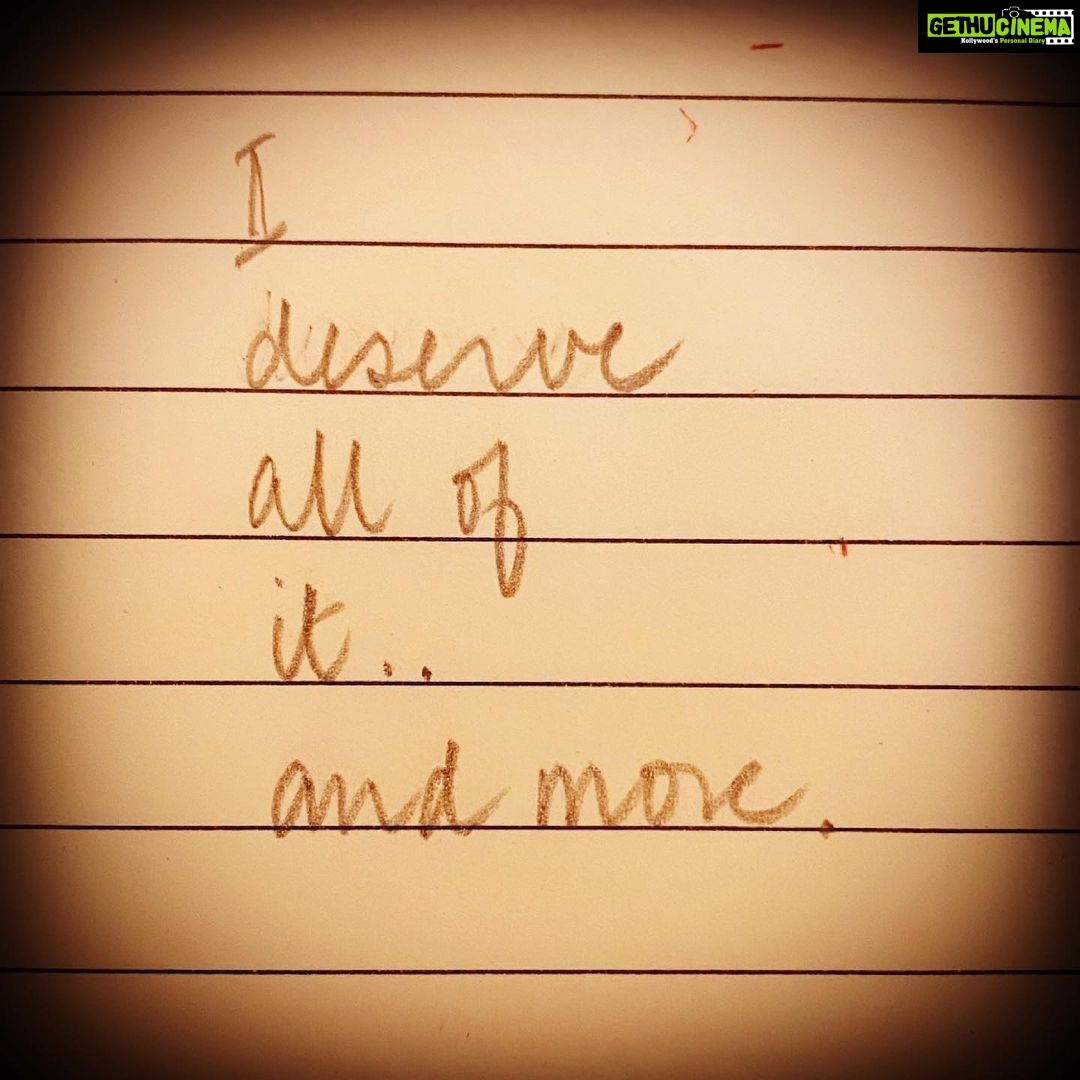 GETHUCINEMA
Kollywood's Personal Diary
I
deserve
all of
it..
and more.